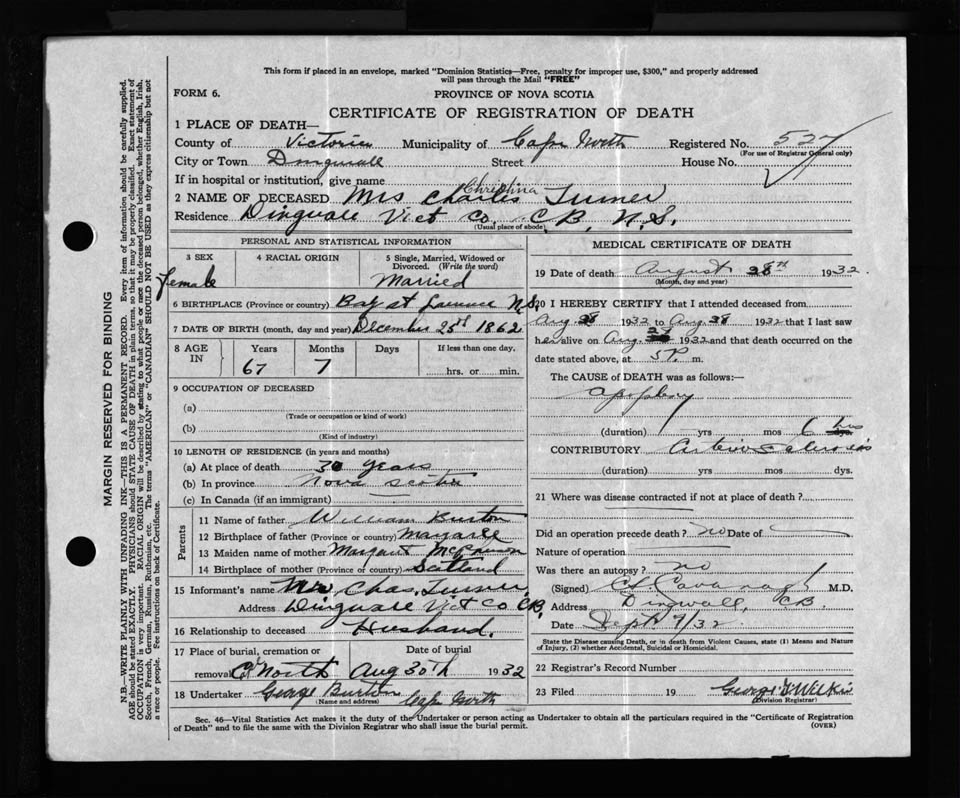 This form if placed in an envelope, marked "Dominion Statistics—Free, penalty for improper use, $300," and properly addressed
will pass through the Mail "FREE"
FORM 6.
PROVINCE OF NOVA SCOTIA
CERTIFICATE OF REGISTRATION OF DEATH
1 PLACE OF DEATH—
County of Victoria Municipality of Cape North Registered No. 527
(For use of Registrar General only)
City or Town Dingwall Street House No.
If in hospital or institution, give name
Christina
2 NAME OF DECEASED Mrs Charles Turner
Residence Dingwall Vict Co. C.B. N.S.
(Usual place of abode)
PERSONAL AND STATISTICAL INFORMATION
3 SEX 4 RACIAL ORIGIN 5 Single, Married, Widowed or
Divorced. (Write the word)
Female Married
6 BIRTHPLACE (Province or country) Bay St N.S.
7 DATE OF BIRTH (month, day and year) December 25th 1862
8 AGE IN Years Months Days If less than one day.
67 7 hrs. or min.
9 OCCUPATION OF DECEASED
(a)
(Trade or occupation or kind of work)
(b)
(Kind of industry)
10 LENGTH OF RESIDENCE (in years and months)
(a) At place of death 30 years
(b) In province Nova Scotia
(c) In Canada (if an immigrant)
Parents
11 Name of father William Burton
12 Birthplace of father (Province or country) Margaree
13 Maiden name of mother Margaret
14 Birthplace of mother (Province or country) Scotland
15 Informant's name Mr. Chas. Turner
Address Dingwall Vict Co C.B.
16 Relationship to deceased Husband.
17 Place of burial, cremation or removal Date of burial
C. North Aug 30th 1932
18 Undertaker George Burton Cape North
(Name and address)
MEDICAL CERTIFICATE OF DEATH
19 Date of death August 28th 1932.
(Month, day and year)
20 I HEREBY CERTIFY that I attended deceased from
Aug. 28 1932 to Aug. 28 1932 that I last saw
her alive on Aug. 28 1932 and that death occurred on the
date stated above, at 5 P. m.
The CAUSE OF DEATH was as follows:
Apoplexy
(duration) yrs mos 6 hrs dys.
CONTRIBUTORY Arterio Sclerosis
(duration) yrs mos dys.
21 Where was disease contracted if not at place of death?
Did an operation precede death? no Date of
Nature of operation
Was there an autopsy? no
(Signed) Cavanagh M.D.
Address Dingwall, C.B.
Date Sept 9/32
State the Disease causing Death, or in death from Violent Causes, state (1) Means and Nature
of Injury, (2) whether Accidental, Suicidal or Homicidal.
22 Registrar's Record Number
23 Filed 19 George Wilkie
(Division Registrar)
Sec. 46—Vital Statistics Act makes it the duty of the Undertaker or person acting as Undertaker to obtain all the particulars required in the "Certificate of Registration
of Death" and to file the same with the Division Registrar who shall issue the burial permit.
(OVER)
MARGIN RESERVED FOR BINDING
N.B.—WRITE PLAINLY WITH UNFADING INK—THIS IS A PERMANENT RECORD. Every item of information should be carefully supplied.
AGE should be stated EXACTLY. PHYSICIANS should STATE CAUSE OF DEATH in plain terms, so that it may be properly classified. Exact statement of
OCCUPATION is very important. RACIAL ORIGIN will be described by stating to what people or race the deceased person belonged, whether English, Irish,
Scotch, French, German, Russian, Ruthenian, etc. The terms "AMERICAN" or "CANADIAN" SHOULD NOT BE USED as they express citizenship but not
a race or people. See instructions on back of Certificate.